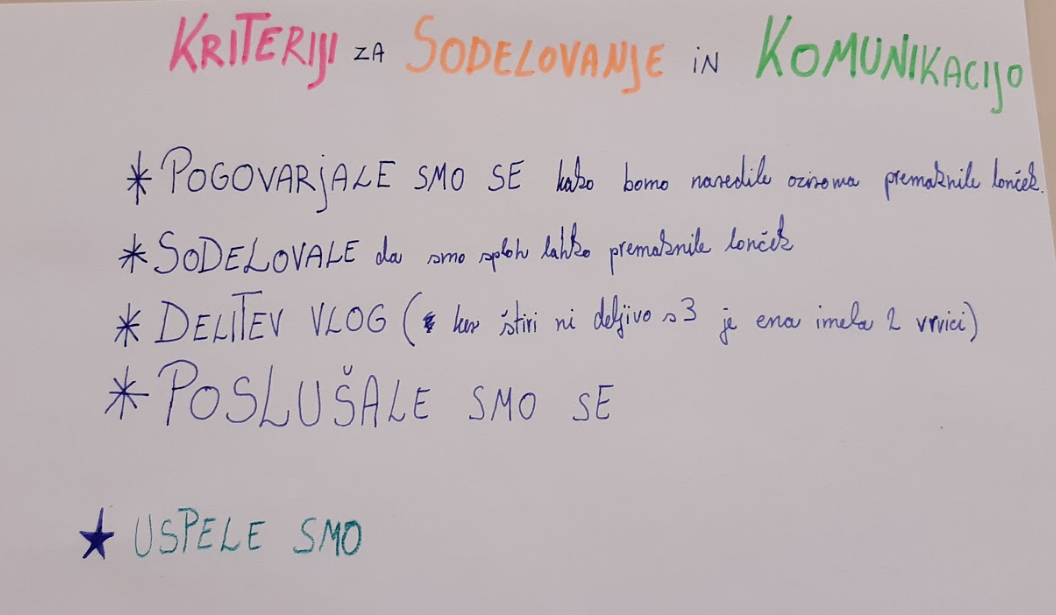 KRITERIJI ZA SODELOVANJE IN KOMUNIKACIJO
* POGOVARJALE SMO SE kako bomo naredile oziroma premaknile lonček.
* SODELOVALE da smo sploh lahko premaknile lonček
* DELITEV VLOG ( ker štiri ni deljivo s 3 je ena imela 2 vrvici)
* POSLUŠALE SMO SE
★ USPELE SMO